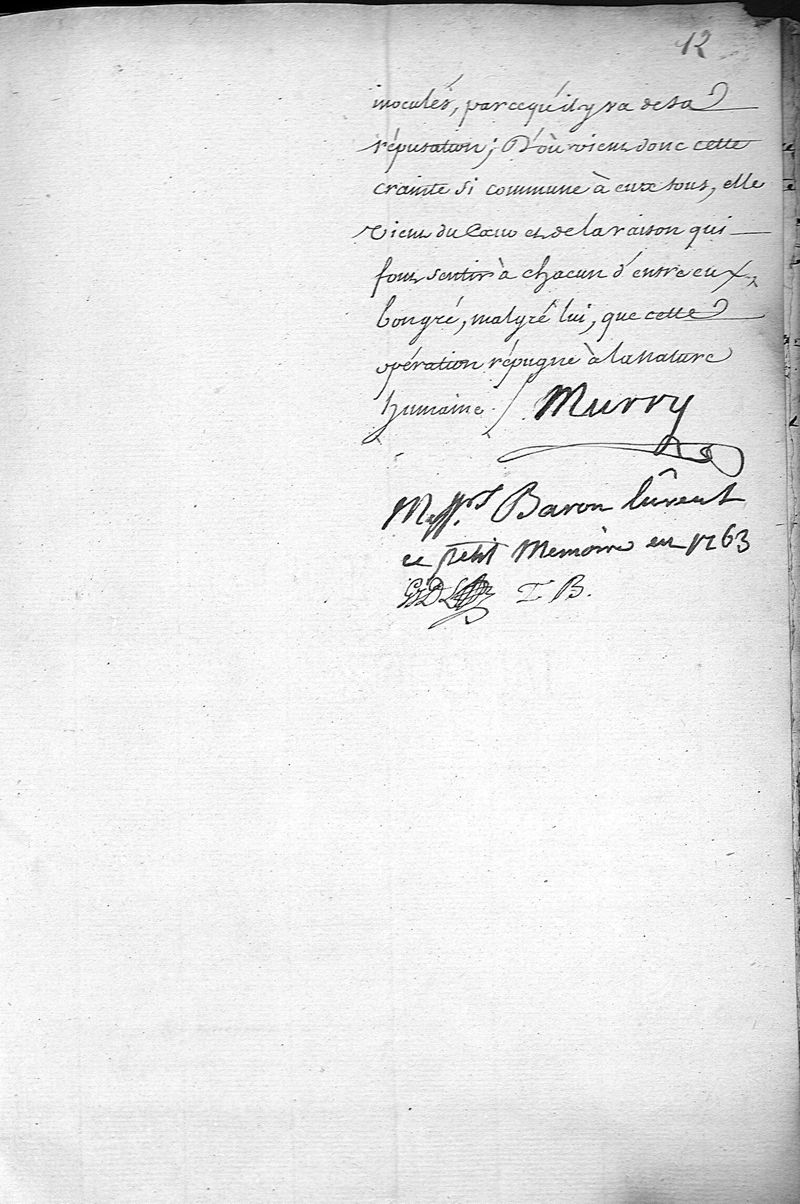 12
inoculés, parcequ'il y va de sa
réputation; D'où vient donc cette
crainte si commune à eux tous, elle
vient du Cœur et de la raison qui
font sentir à chacun d'entre eux,
bongré, malgré lui, que cette
opération répugne à la Nature
humaine. / Murry
Messrs Baron lûrent
ce petit Memoire en 1763
T B.